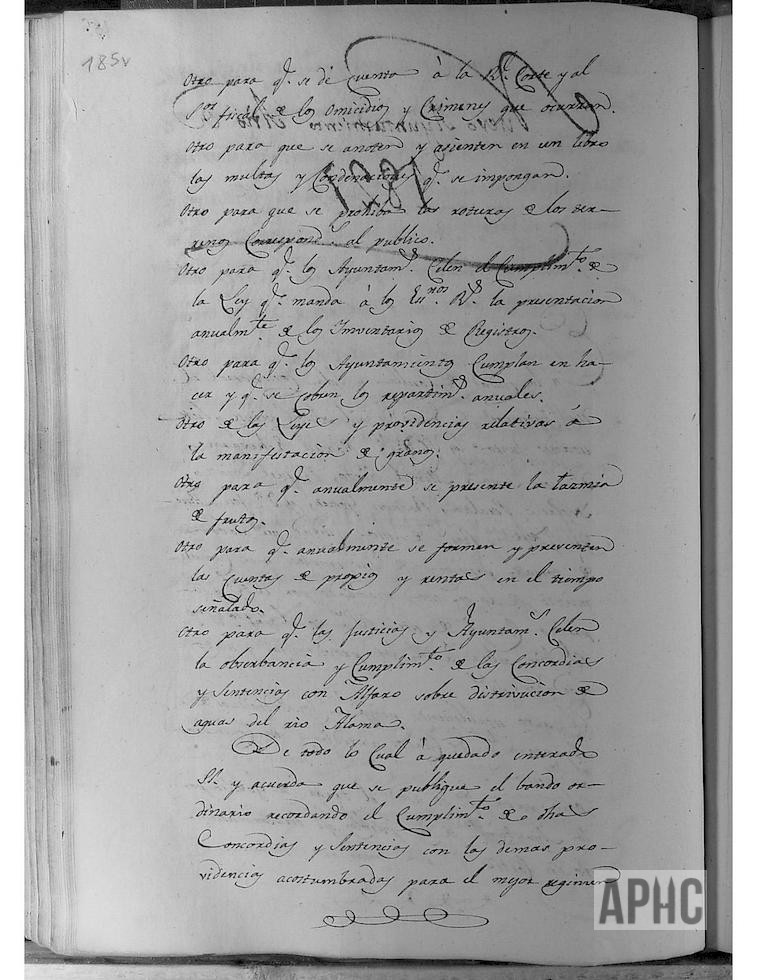 185v
Otro para q.e se dé Cuenta à la R.l Corte y al
S.or fiscal de los Omicidios y Crimenes que ocurran.
Otro para que se anoten y asienten en un libro
las multas y Condenaciones q.e se impongan.
Otro para que se prohiba las roturas de los ter-
renos Correspond.s al publico.
Otro para q.e los Ayuntam.s Celen el Cumplim.to de
la Ley q.e manda à los Es.nos R.s la presentacion
anualm.te de los Inventarios de Registros.
Otro para q.e los Ayuntamientos Cumplan en ha-
cer y q.e se Cobren los repartim.s anuales.
Otro de las Leyes y providencias relativas á
la manifestacion de granos.
Otro para q.e anualmente se presente la tazmia
de frutos.
Otro para q.e anualmente se formen y presenten
las Cuentas de propios y rentas en el tiempo
señalado.
Otro para q.e las Justicias y Ayuntam.s Celen
la obserbancia y Cumplim.to de las Concordias
y Sentencias con Alfaro sobre distrivucion de
aguas del rio Alama.
De todo lo Cual à quedado enterado
SS. y acuerda que se publique el bando or-
dinario recordando el Cumplim.to de dhas
Concordias y Sentencias con las demas pro-
videncias acostumbradas para el mejor regimen
APHC